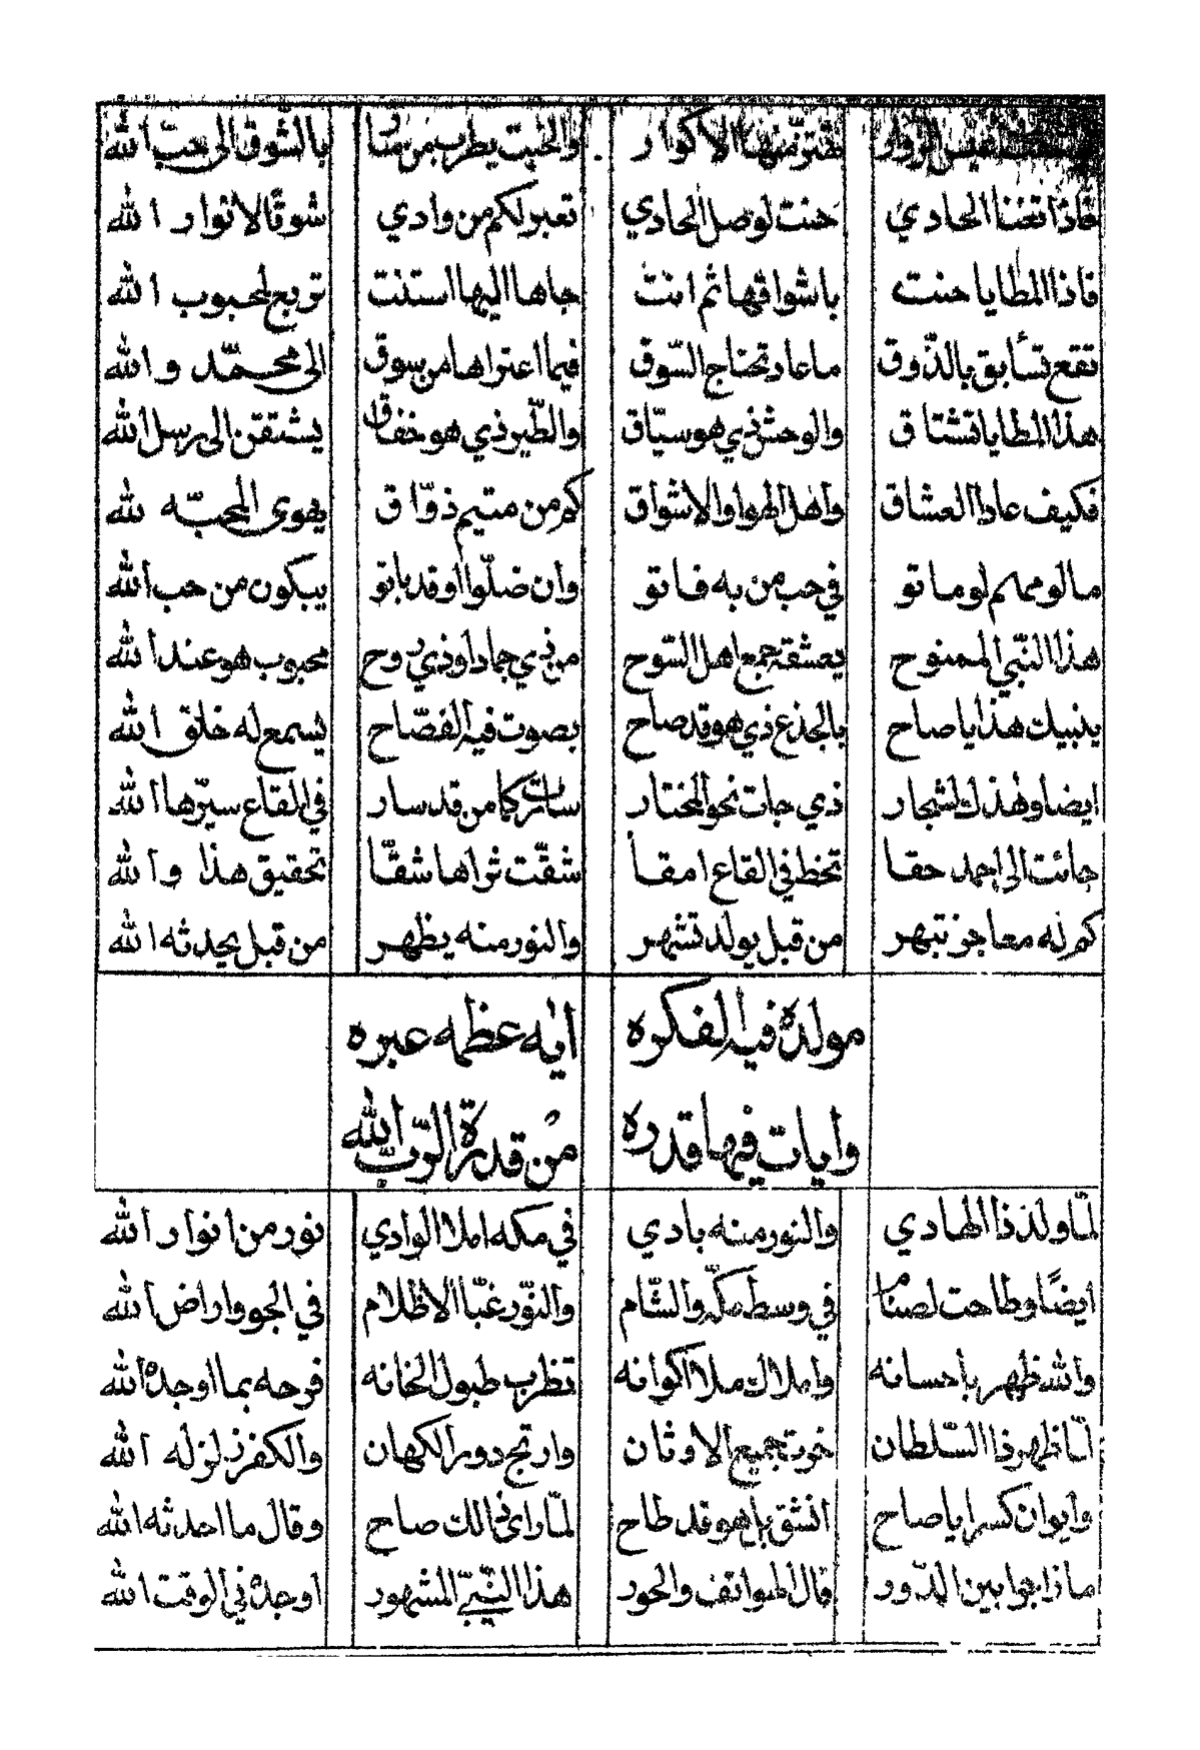 عيس الزوار تهتز منها الاكوار والخبت يطرب من بالشوق الى حب الله
فاذا تغنا الحادي حنت لوصل الحادي تعبر لكم من وادي شوقا لانوار الله
فاذا المطايا حنت باشواقها ثم انت جاها اليها استنت تربع لمحبوب الله
تقع تسأبق بالذّوق ما عاد تحتاج السّوق فيما اعتراها من سوق الى محمّد والله
هذا المطايا تشتاق والوحش ذي هو سبّاق والطّير ذي هو خفاق يشتقن الى رسل الله
فكيف عاد العشاق واهل الهوا والاشواق كم من متيم ذوّاق يهوى المحبّه لله
مالومهم لو ماتو في حب من به فاتو وان ضلّوا او قد باتو يبكون من حب الله
هذا النّبي الممنوح يعشقه جمع اهل السّوح من ذي جماد او ذي روح محبوب هو عند الله
ينبيك هذا يا صاح بالجذع ذي هو قد صاح بصوت فيه الفصّاح يسمع له خلق الله
ايضا ولهذك لشجار ذي جات نحو المختار سارت كما من قد سار في القاع سيّرها الله
جائت الى احمد حقا تخط في القاع امقا شقّت ثراها شقّا تحقيق هذا والله
كم له معاجز تبهر من قبل يولد تشهر والنور منه يظهر من قبل يحدثه الله
مولده فيه الفكره ايه عظمه عبره
وايات فيها قدره من قدرة الرّب الله
لمّا ولد ذا الهادي والنور منه بادي في مكه املا الوادي نور من انوار الله
ايضًا وطاحت لصناما في وسط مكّه والشّام والنّور غبّا الاظلام في الجو واراض الله
والله ظهر بأحسانه واملاك ملا اكوانه تظرب طبول الخانه فرحه بما اوجده الله
لمّا ظهر ذا السّلطان خرت جميع الاوثان وارتج دور الكهان والكفر زلزله الله
وايوان كسرا يا صاح انشق بل هو قد طاح لمّا راى ذالك صاح وقال ما احدثه الله
ماذا جوا بين الدّور قال الهواتف والحور هذا النّبيّ المشهور اوجده في الوقت الله